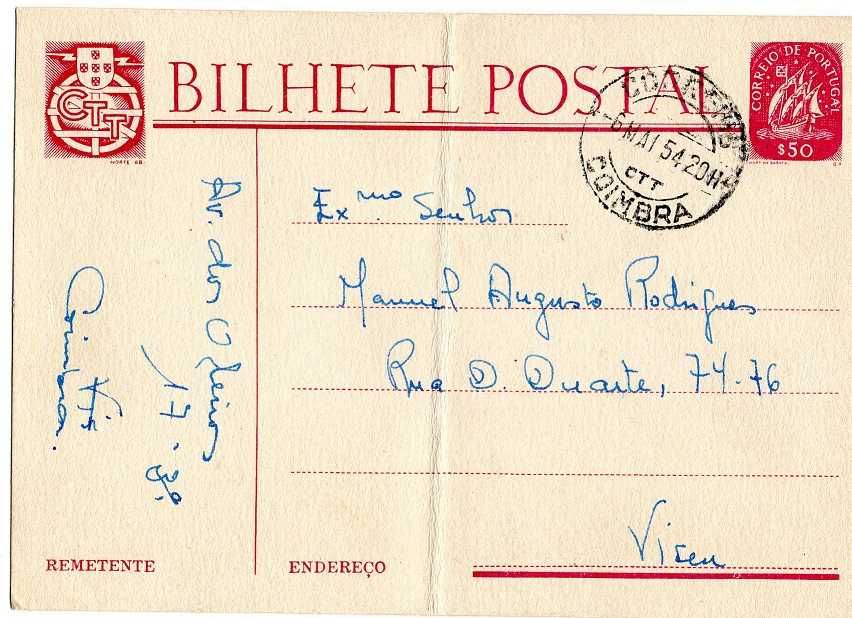 CTT
BILHETE POSTAL
CORREIO DE PORTUGAL
$50
-6 MAI 54 20H
CTT
COIMBRA
Ex.mo Senhor
Manuel Augusto Rodrigues
Rua D. Duarte, 74-76
Viseu
Av. dos Oleiros
17-3º
Coimbra.
REMETENTE
ENDEREÇO